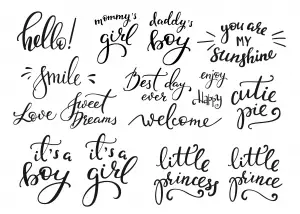 hello!
mommy's
girl
daddy's
boy
you are
MY
Sunshine
Smile
Best day
ever
enjoy
Happy
cutie
pie
Love
Sweet
Dreams
welcome
it's a
boy
it's a
girl
little
princess
little
prince